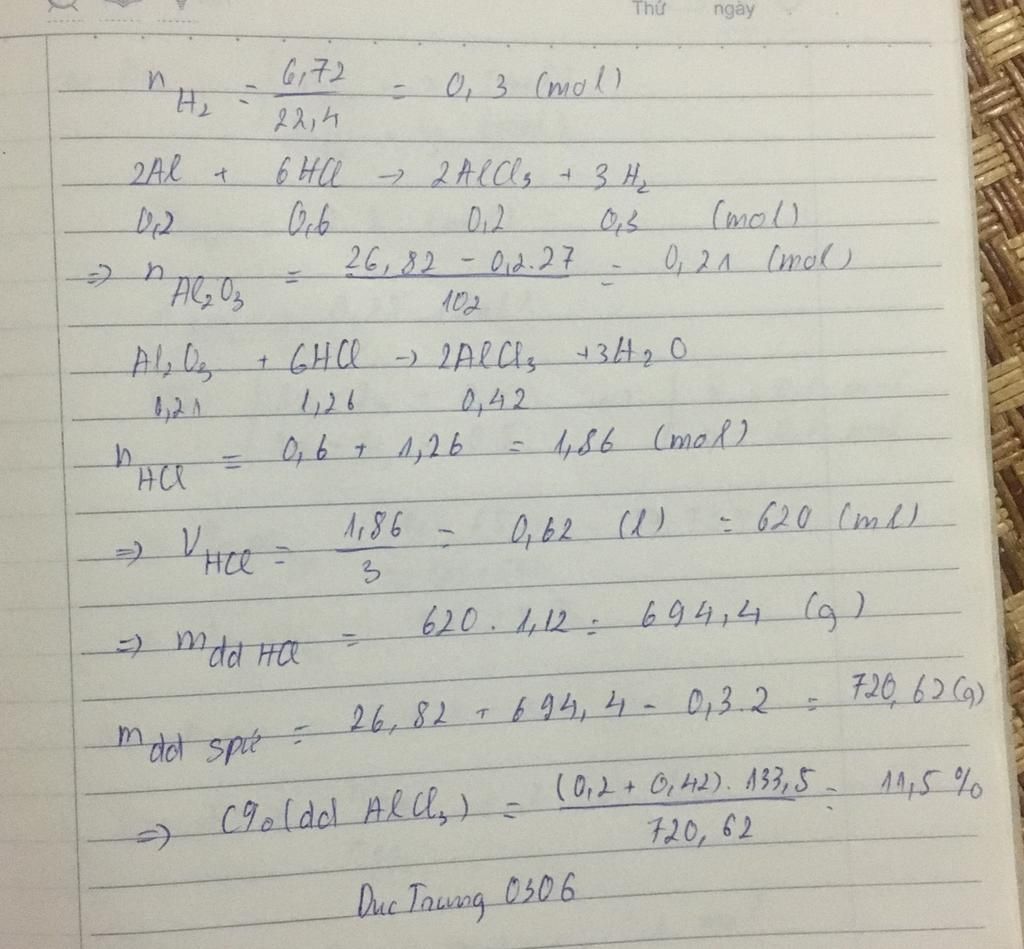 Thứ ngày
n H₂ = 6,72/22,4 = 0,3 (mol)
2Al + 6HCl → 2AlCl₃ + 3H₂
0,2 0,6 0,2 0,3 (mol)
⇒ n Al₂O₃ = (26,82 - 0,2.27)/102 = 0,21 (mol)
Al₂O₃ + 6HCl → 2AlCl₃ + 3H₂O
0,21 1,26 0,42
n HCl = 0,6 + 1,26 = 1,86 (mol)
⇒ V HCl = 1,86/3 = 0,62 (l) = 620 (ml)
⇒ m dd HCl = 620 . 1,12 = 694,4 (g)
m dd spư = 26,82 + 694,4 - 0,3.2 = 720,62 (g)
⇒ C% (dd AlCl₃) = (0,2 + 0,42).133,5/720,62 = 11,5 %
Duc Trung 0306